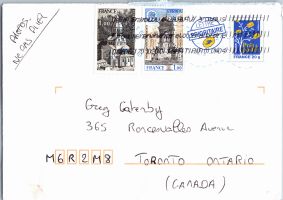 PHOTOS
NE PAS PLIER
FRANCE
1,00
FRANCE
1,00
PRIORITAIRE
FRANCE 20g
Greg Gatenby
365 Roncesvalles Avenue
M6R2M8 TORONTO ONTARIO
(CANADA)